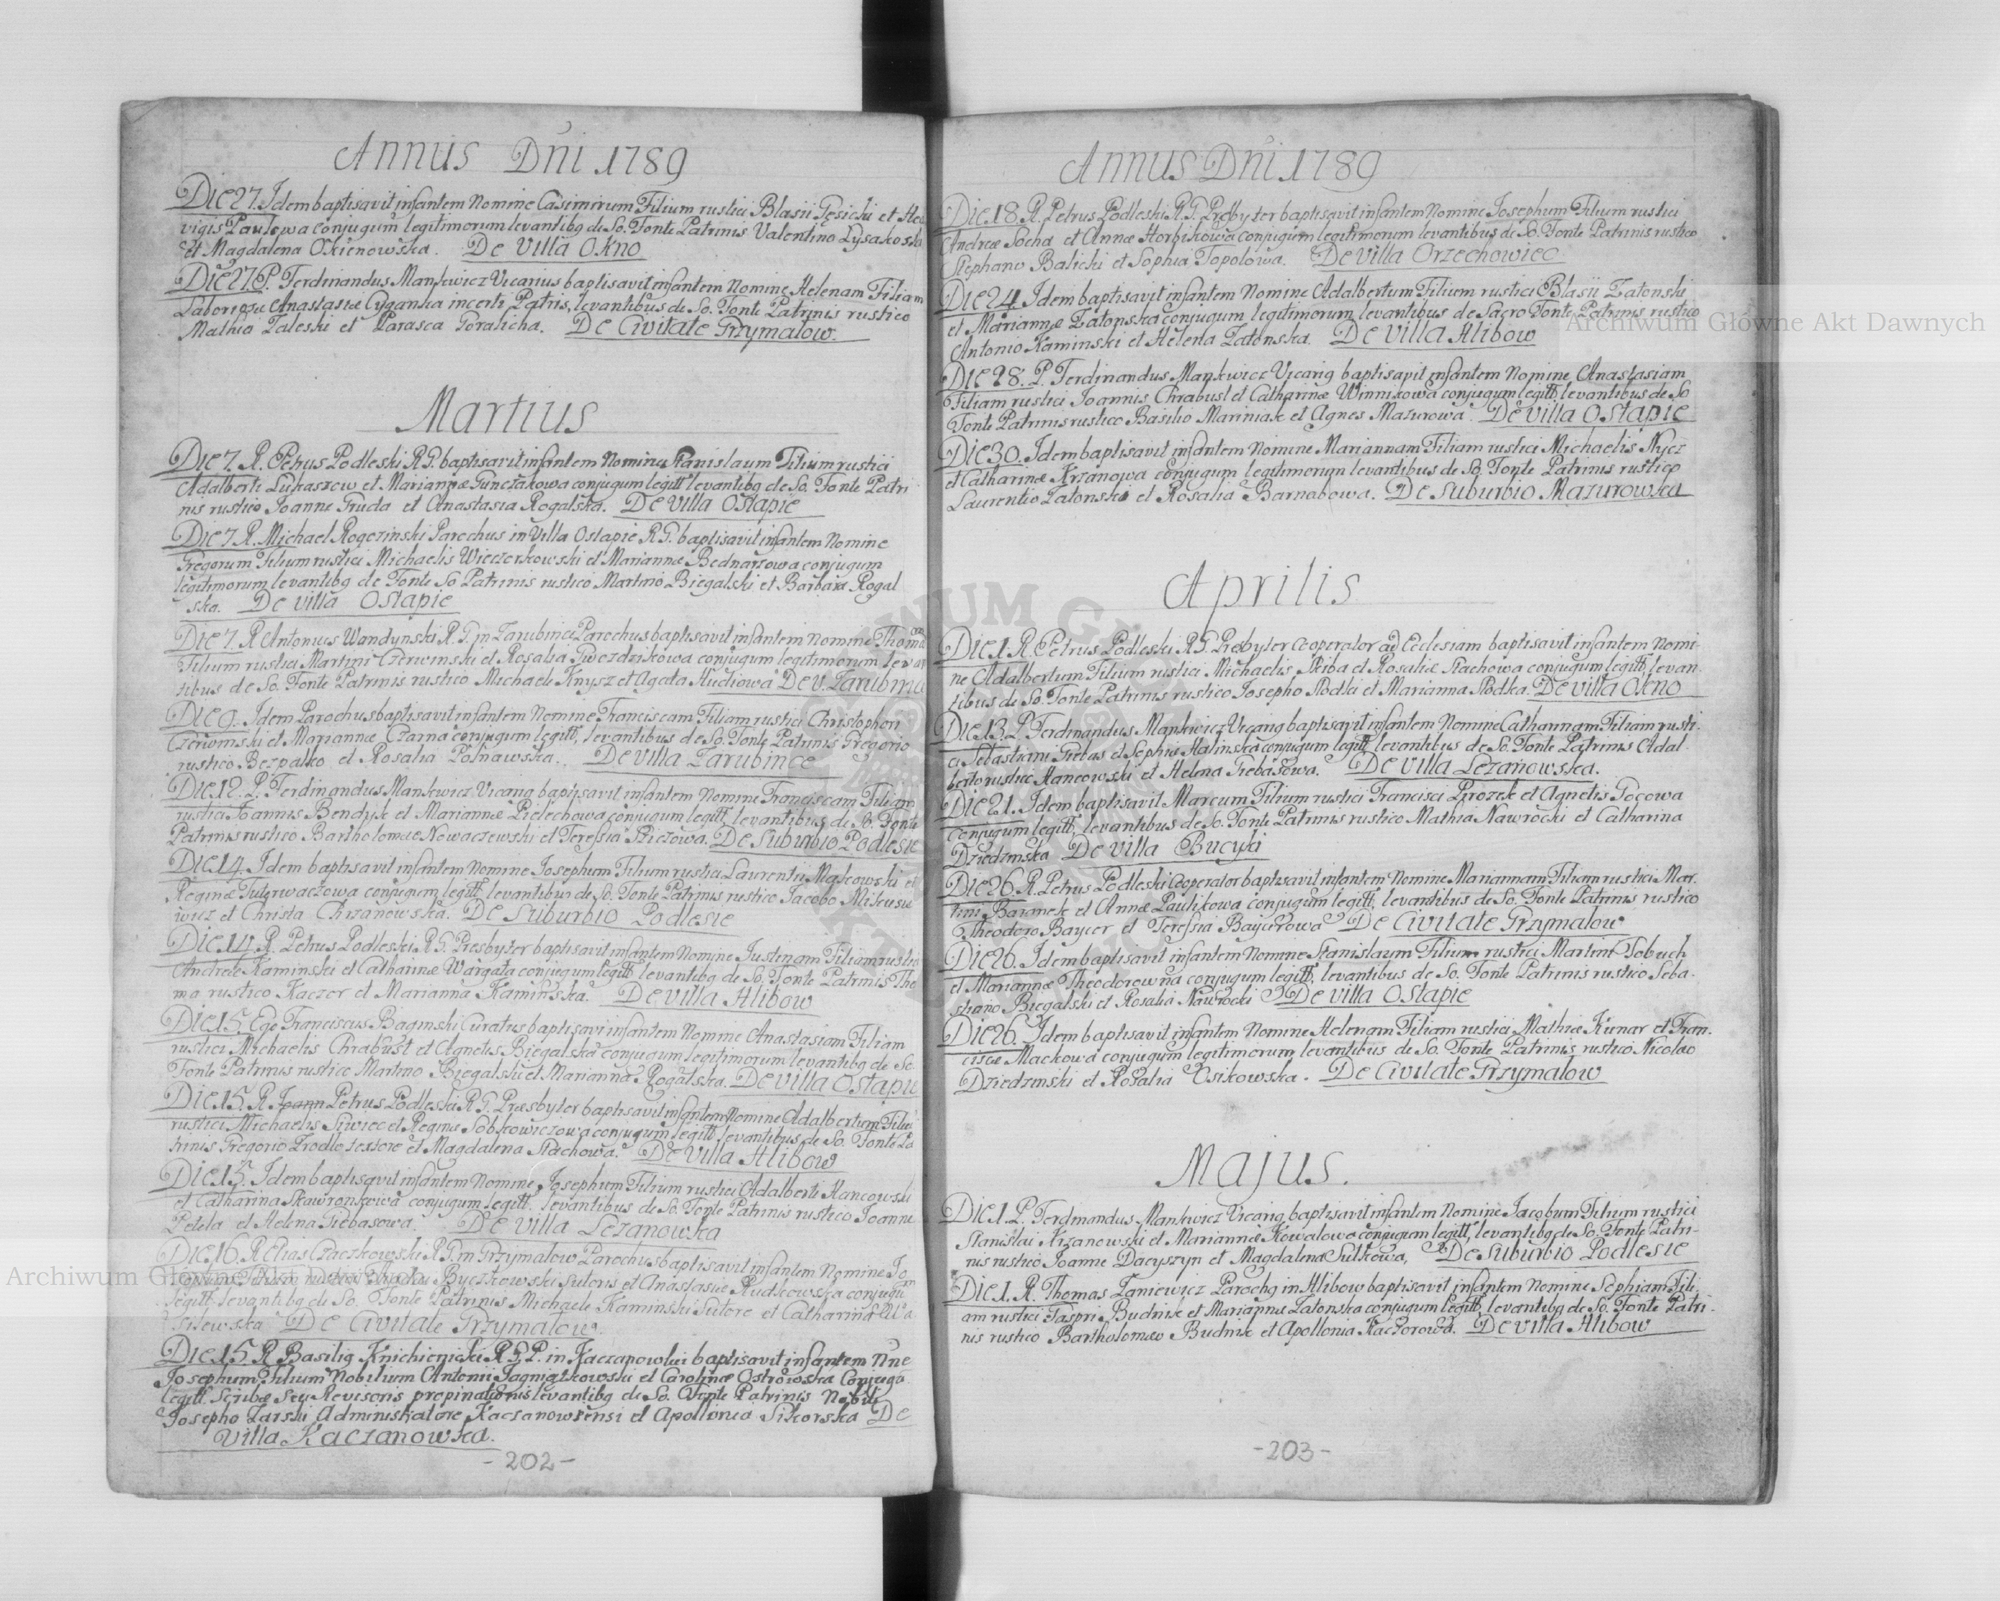 Annus Dni 1789
Die 27. Idem baptisavit infantem Nomine Casimirum Filium rustici Blasii Gęsicki et Hed
vigis Paulowa conjugum legitimorum levantibq de So. Fonte Patrinis Valentino Łysakoski
et Magdalena Okienowska. De Villa Okno
Die 27. P. Ferdinandus Mankwicz Vicarius baptisavit infantem Nomine Helenam Filiam
Laboriosæ Anastasiæ Cyganka incerti Patris, levantibus de So. Fonte Patrinis rustico
Mathia Zaleski et Parasca Goralicha. De Civitate Grzymałow.
Martius
Die 7. R. Petrus Podleski R.G. baptisavit infantem Nomine Stanislaum Filium rustici
Adalberti Lukaszow et Mariannæ Junczakowa conjugum legitt. levantibq de So. Fonte Patri
nis rustico Joanne Gruda et Anastasia Rogalska. De Villa Ostapie
Die 7. R. Michael Rogozinski Parochus in Villa Ostapie R.G. baptisavit infantem Nomine
Gregorum Filium rustici Michaelis Wieczorkowski et Mariannæ Bednarzowa conjugum
legitimorum levantibq de Fonte So Patrinis rustico Martino Biegalski et Barbara Rogal
ska. De Villa Ostapie
Die 7. R Antonius Wandynski R.G. in Zarubince Parochus baptisavit infantem Nomine Thoma
Filium rustici Martini Czerwinski et Rosalia Gwozdzikowa conjugum legitimorum levan
tibus de So. Fonte Patrinis rustico Michaele Knysz et Agata Hudiowa De V. Zarubince
Die 9. Idem Parochus baptisavit infantem Nomine Franciscam Filiam rustici Christophori
Czerwinski et Mariannæ Czarna conjugum legitt. levantibus de So. Fonte Patrinis Gregorio
rustico Bezpalko et Rosalia Posnawska. De Villa Zarubince
Die 12. P. Ferdinandus Mankwicz Vicarıq baptisavit infantem Nomine Franciscam Filiam
rustici Joannis Bendyk et Mariannæ Pielechowa conjugum legitt. levantibus de So. Fonte
Patrinis rustico Bartholomæo Nowaczewski et Teressia Biczowa. De Suburbio Podlesie
Die 14. Idem baptisavit infantem Nomine Josephum Filium rustici Laurentii Maskowski et
Reginæ conjugum legitt. levantibus de So. Fonte Patrinis rustico Jacobo Miseusie
wicz et Christa Chrzanowska. De Suburbio Podlesie
Die 14. R. Petrus Podleski R.G. Presbyter baptisavit infantem Nomine Justinam Filiam rustici
Andreæ Kaminski et Catharinæ Wargata conjugum legitt. levantibq de So. Fonte Patrinis Tho
ma rustico Kaczor et Marianna Kaminska. De Villa Hlibow
Die 15. Ego Franciscus Baginski Curatus baptisavi infantem Nomine Anastasiam Filiam
rustici Michaelis Chrabust et Agnetis Biegalska conjugum legitimorum levantibq de So.
Fonte Patrinis rustico Martino Biegalski et Marianna Rogalska. De Villa Ostapie
Die 15. R. Joann Petrus Podleski R.G. Præsbyter baptisavit infantem Nomine Adalbertum Filiu
rustici Michaelis Siwiec et Reginæ Sobkowiczowa conjugum legitt. levantibus de So. Fonte Pa
trinis Gregorio Zrodlo textore et Magdalena Stachowa. De Villa Hlibow
Die 15. Idem baptisavit infantem Nomine Josephum Filium rustici Adalberti Hancowski
et Catharina Skawronkowa conjugum legitt. levantibus de So. Fonte Patrinis rustico Joanne
Petela et Helena Grebasowa. De Villa Lezanowka
Die 16. R. Elias Czaczkowski R.G. in Grzymałow Parochus baptisavit infantem Nomine Jo
Byczkowski Sutoris et Anastasiæ Rudkowska conjugu
legitt. levantibq de So. Fonte Patrinis Michaele Kaminski Sutore et Catharina
Filewska De Civitate Grzymałow.
Die 15. R Basiliq Knichienicki R.G.P. in Kaczanowka baptisavit infantem Nne
Josephum Filium Nobilium Antonii Jagniątkowski et Carolinæ Ostrowska Conjugu
legitt. Scribæ seu Revisoris propinationis levantibq de So. Fonte Patrinis Nobili
Josepho Zarski Administratore Kaczanowsensi et Apollonia Sikorska De
Villa Kaczanowska.
-202-
Annus Dni 1789
Die 18. R. Petrus Podleski R.G. Præbyter baptisavit infantem Nomine Josephum Filium rustici
Andreæ Socha et Annæ Horbikowa conjugum legitimorum levantibus de So. Fonte Patrinis rustico
Stephano Balicki et Sophia Topolowa. De Villa Orzechowiec
Die 24. Idem baptisavit infantem Nomine Adalbertum Filium rustici Blasii Zatonski
et Mariannæ Zatonska conjugum legitimorum levantibus de Sacro Fonte Patrinis rustico
Antonio Kaminski et Helena Zatonska. De Villa Hlibow
Die 28. P. Ferdinandus Mankwicz Vicariq baptisavit infantem Nomine Anastasiam
Filiam rustici Joannis Chrabust et Catharinæ Winnikowa conjugum legitt. levantibus de So
Fonte Patrinis rustico Basilio Mariniak et Agnes Mazurowa. De Villa Ostapie
Die 30. Idem baptisavit infantem Nomine Mariannam Filiam rustici Michaelis Nycz
et Catharinæ Krzanowa conjugum legitimorum levantibus de So. Fonte Patrinis rustico
Laurentio Zatonski et Rosalia Barnabowa. De Suburbio Mazurowka
Aprilis
Die 1. R. Petrus Podleski R.G. Præbyter Cooperator ad Eclesiam baptisavit infantem Nomi-
ne Adalbertum Filium rustici Michaelis Skiba et Rosaliæ Stachowa conjugum legitt. levan-
tibus de So. Fonte Patrinis rustico Josepho Stodki et Marianna Stodka. De Villa Okno
Die 13. P. Ferdinandus Mankwicz Vicariq baptisavit infantem Nomine Catharinam Filiam rusti-
ci Sebastiani Grebas et Sophia Halinska conjugum legitt. levantibus de So. Fonte Patrinis Adal-
berto rustico Hancowski et Helena Grebasowa. De Villa Lezanowska.
Die 21. Idem baptisavit Marcum Filium rustici Francisci Pirozek et Agnetis Gocowa
Conjugum legitt. levantibus de So. Fonte Patrinis rustico Mathia Nawrocki et Catharina
Dziedzinska De Villa Bucyki
Die 26. R. Petrus Podleski Cooperator baptisavit infantem Nomine Mariannam Filiam rustici Mar-
tini Baranek et Annæ Paulikowa conjugum legitt. levantibus de So. Fonte Patrinis rustico
Theodoro Baycer et Teressia Baycerowa De Civitate Grzymałow
Die 26. Idem baptisavit infantem Nomine Stanislaum Filium rustici Martini Sobuch
et Mariannæ Theodorowna conjugum legitt. levantibus de So. Fonte Patrinis rustico Seba-
stiano Biegalski et Rosalia Nawrocki De Villa Ostapie
Die 26. Idem baptisavit infantem Nomine Helenam Filiam rustici Mathiæ Kunar et Fran-
ciscæ Mackowa conjugum legitimorum levantibus de So. Fonte Patrinis rustico Nicolao
Dziedzinski et Rosalia Osikowska. De Civitate Grzymałow
Majus.
Die 1. P. Ferdinandus Mankwicz Vicariq baptisavit infantem Nomine Jacobum Filium rustici
Stanislai Krzanowski et Mariannæ Kowalowa conjugum legitt. levantibq de So. Fonte Patri-
nis rustico Joanne Dacyszyn et Magdalena Sulkowa, De Suburbio Podlesie
Die 1. R. Thomas Zaniewicz Parochq in Hlibow baptisavit infantem Nomine Sophiam Fili-
am rustici Gaspri Budnik et Mariannæ Zatonska conjugum legitt. levantibq de So. Fonte Patri-
nis rustico Bartholomæo Budnik et Apollonia Kaczorowa. De Villa Hlibow
-203-
Archiwum Główne Akt Dawnych
Archiwum Główne Akt Dawnych